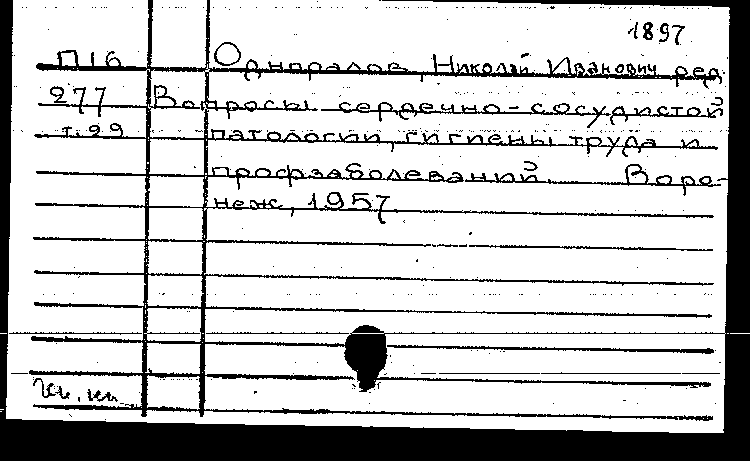 1897
П16 Одноралов, Николай Иванович ред.
277 Вопросы сердечно-сосудистой
т.29 патологии, гигиены труда и
профзаболеваний. Воро-
неж, 1957